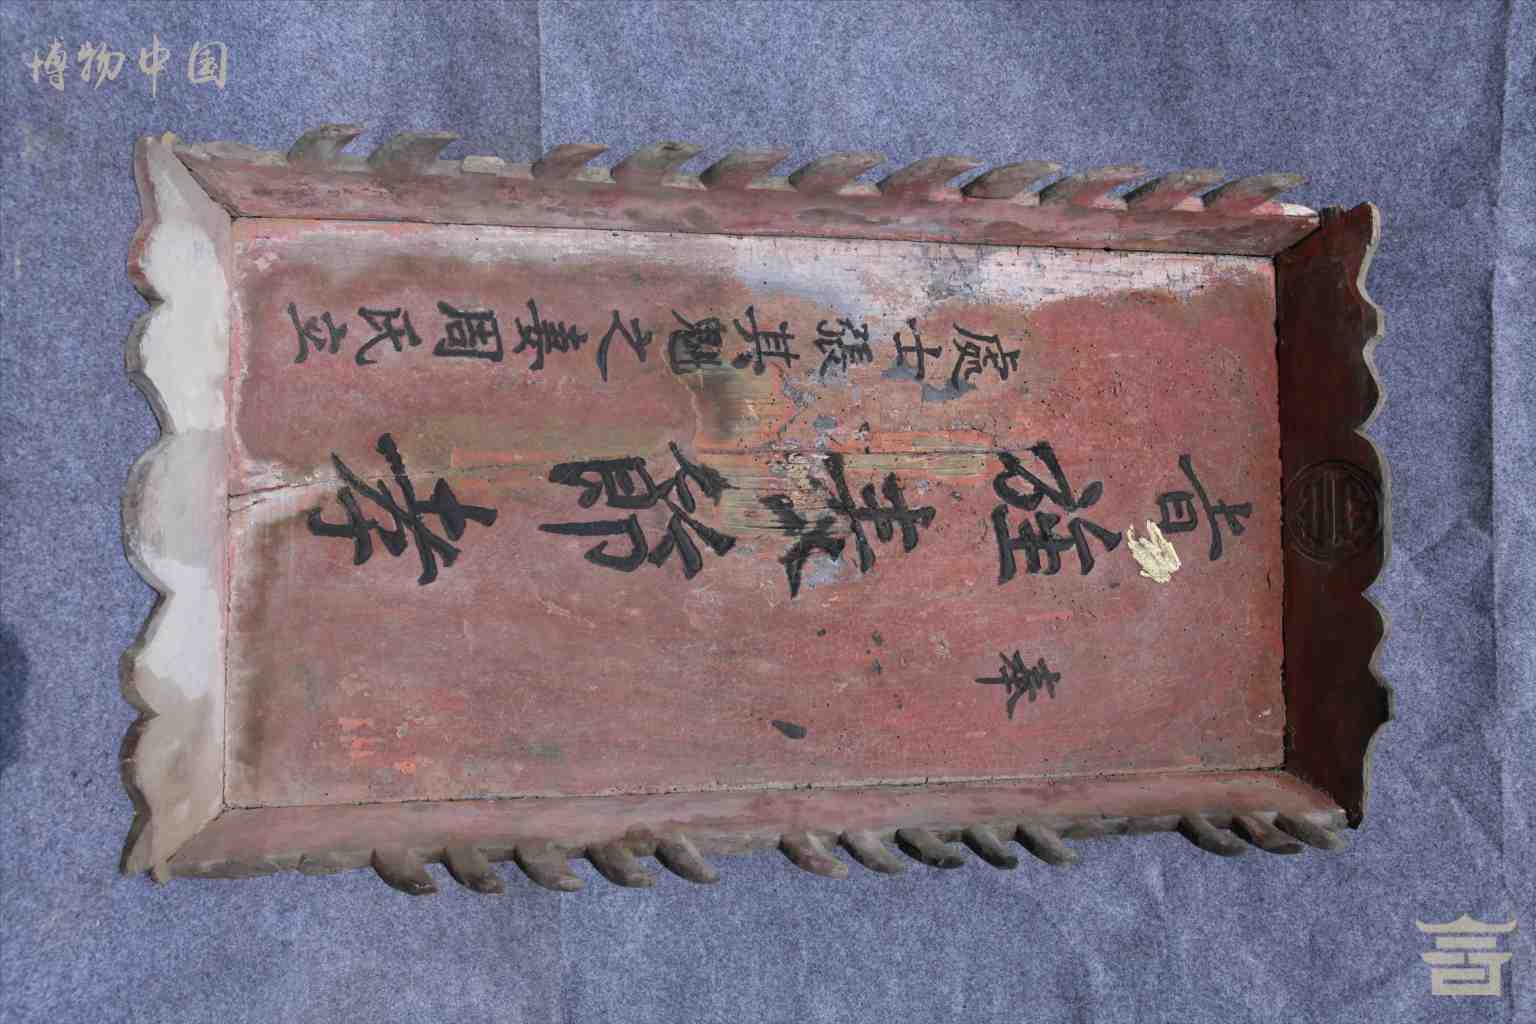 博物中国
奉
旨旌表節孝
處士張其魁之妻周氏立